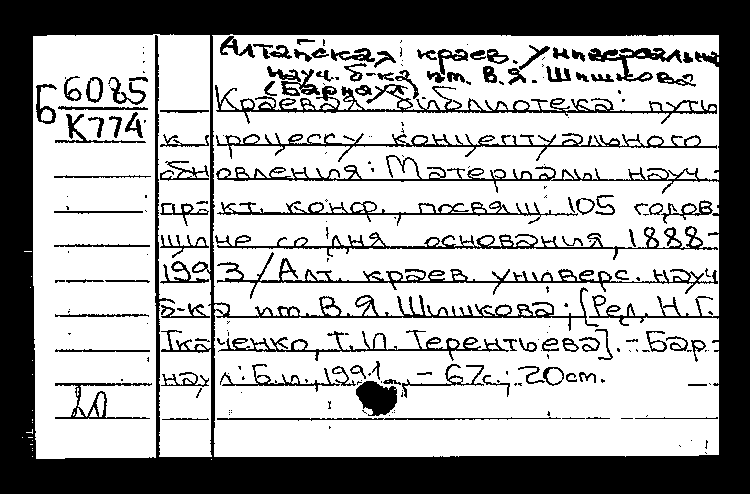 Алтайская краев. универсальна
науч. б-ка им. В.Я. Шишкова
(Барнаул).
Б 6085
К774
Краевая библиотека: путь
к процессу концептуального
обновления: Материалы науч.-
практ. конф., посвящ. 105 годов-
щине со дня основания, 1888-
1993/Алт. краев. универс. науч
б-ка им. В.Я. Шишкова; [Ред. Н.Г.
Ткаченко, Т.И. Терентьева]. - Бар-
наул: Б.и., 1991. - 67с.; 20cm.